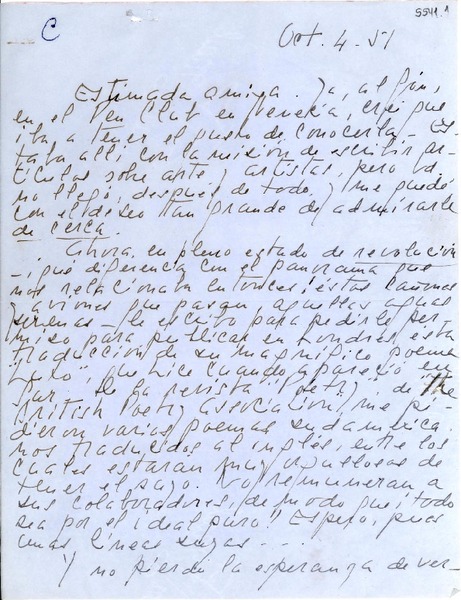 5541.1
C
Oct. 4-51
Estimada amiga. Ya, al fin,
en el Pen Club en Venecia, creí que
iba a tener el gusto de conocerla. Es-
taba allí con la misión de escribir ar-
tículos sobre arte y artistas, pero Ud
no llegó, después de todo. y me quedé
con el deseo tan grande de admirarle
de cerca.
Ahora, en pleno estado de revolución
-¡qué diferencia con el panorama que
nos relacionaba entonces, éstos cañones
y aviones que pasan aquellas aguas
serenas- le escribo para pedirle per-
miso para publicar en Londres esta
traducción de su magnífico poema
"Luto", que hice cuando apareció en
Sur. De la revista "Poetry" de The
British Poetry Association, me pi-
dieron varios poemas sudamerica-
nos traducidos al inglés, entre los
cuales estarán muy orgullosos de
tener el suyo. No remuneran a
sus colaboradores, de modo que ¡todo
sea por el ideal puro! Espero, pues
unas líneas suyas....
Y no pierdo la esperanza de ver-